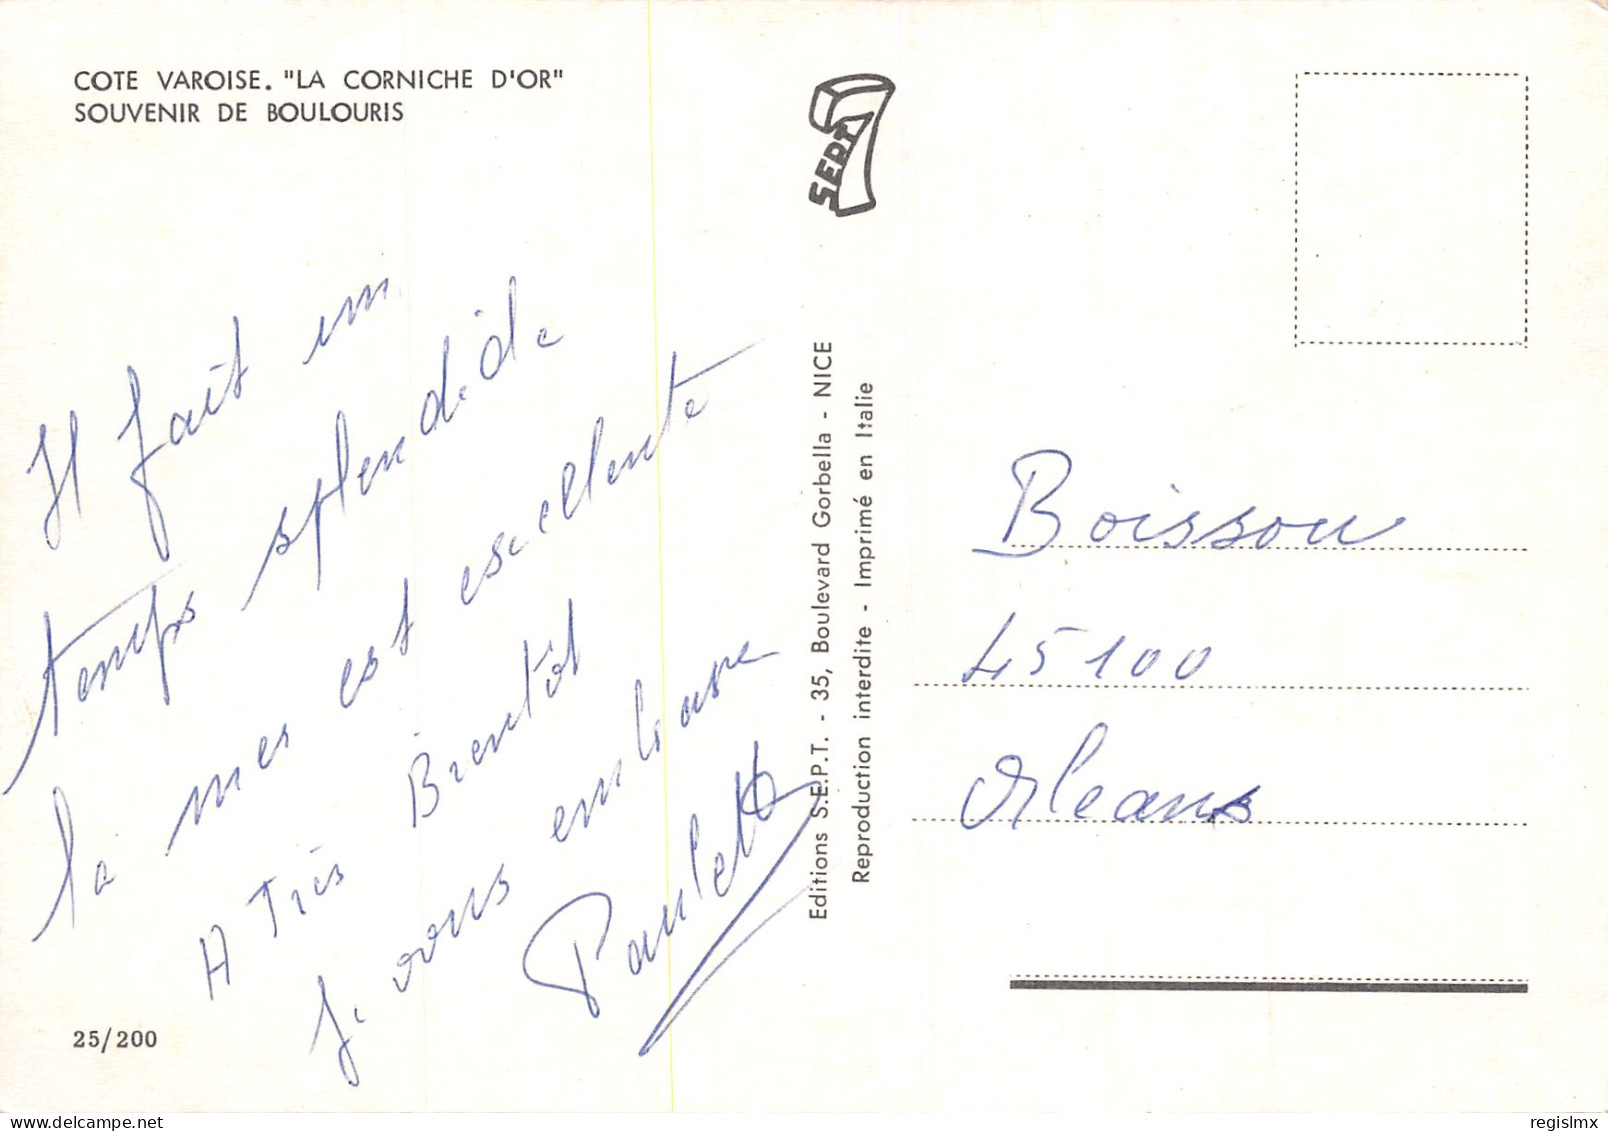 COTE VAROISE. "LA CORNICHE D'OR"
SOUVENIR DE BOULOURIS
Il fait un
temps splendide
la mer est excellente
A Très Bientôt
Je vous embrasse
Paulette
25/200
SEPT
Editions S.E.P.T. - 35, Boulevard Gorbella - NICE
Reproduction interdite - Imprimé en Italie
Boisson
45100
Orleans
regislmx